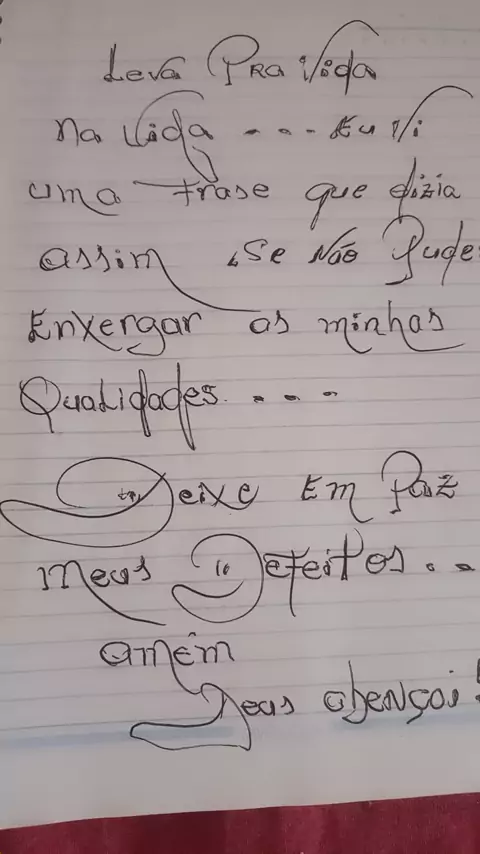 Leva Pra Vida
na Vida . . . . Eu Vi
uma frase que dizia
assim , Se Não Pude
Enxergar as minhas
Qualidades. . . .
Deixe Em Paz
meus Defeitos . . .
amém
Deus abençoi!